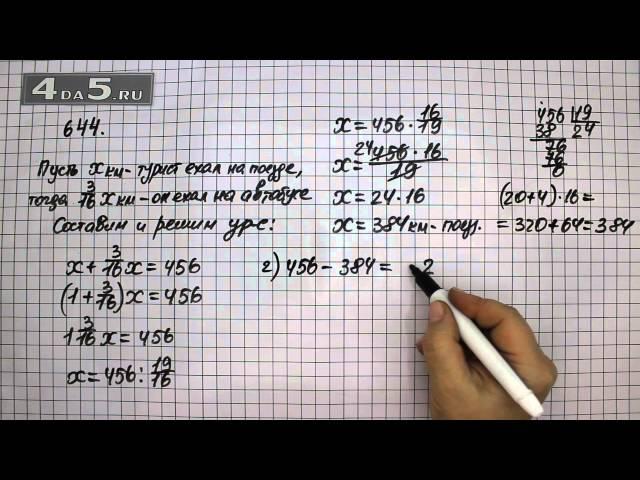 4DA5.RU
644.
Пусть x км - турист ехал на поезде,
тогда 3/16 x км - он ехал на автобусе
Составим и решим ур-е:
x + 3/16 x = 456
(1 + 3/16) x = 456
1 3/16 x = 456
x = 456 : 19/16
x = 456 · 16/19
x = 24 456 · 16 / 19
x = 24 · 16
x = 384 км - поезд.
456 | 19
38 24
76
76
0
(20+4) · 16 =
= 320 + 64 = 384
2) 456 - 384 = 2